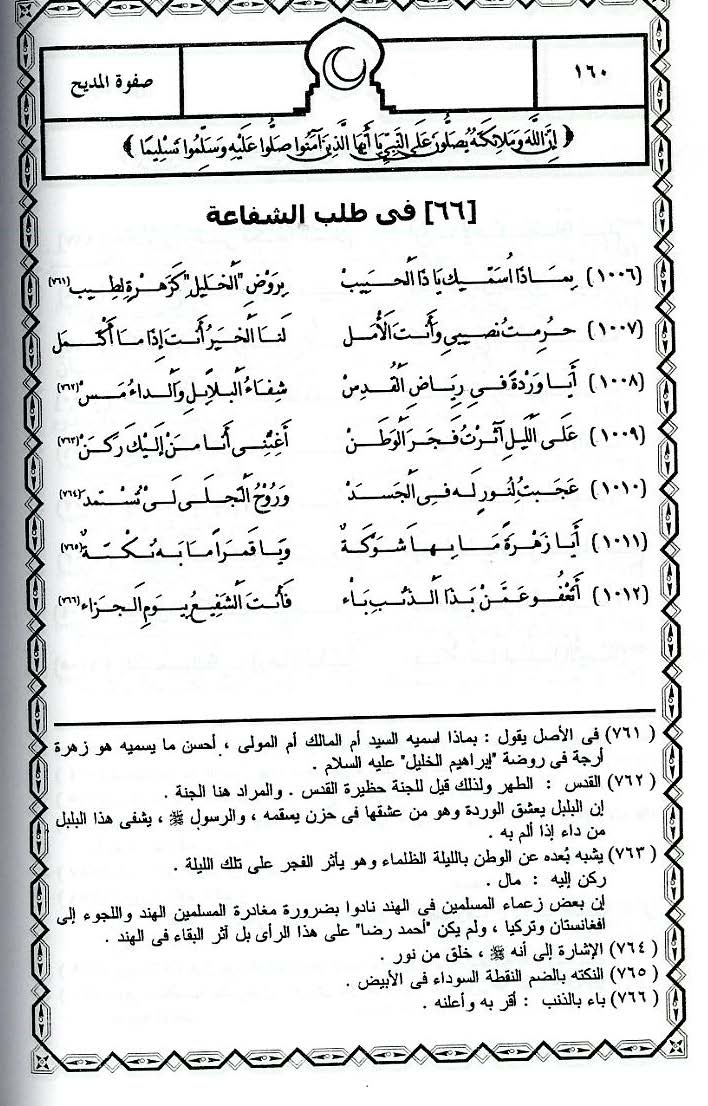 ١٦٠
صفوة المديح
﴿ إِنَّ اللَّهَ وَمَلَائِكَتَهُ يُصَلُّونَ عَلَى النَّبِيِّ يَا أَيُّهَا الَّذِينَ آمَنُوا صَلُّوا عَلَيْهِ وَسَلِّمُوا تَسْلِيمًا ﴾
[٦٦] فى طلب الشفاعة
(١٠٠٦) بِمَاذَا اُسَمِّيكَ يَا ذَا الْحَبِيبْ بِرَوْضِ "الْخَلِيلِ" كَزَهْرَةِ لِطِيب (٧٦١)
(١٠٠٧) حُرِمتُ نصيبى وأنتَ الأَمَل لَنَا الْخَيرُ أَنتَ إِذَا مَا أَكْمَل
(١٠٠٨) أَيَا وَرْدَةً فى رِيَاضِ الْقُدسْ شِفَاءُ البلابلِ والداءُ مَس (٧٦٢)
(١٠٠٩) عَلَى اللَّيلِ آثرتُ فَجرَ الوَطَنْ أَغِثْنِى أَنَا مَنْ إِلَيْكَ رَكَنْ (٧٦٣)
(١٠١٠) عَجَبتُ لِنُورٍ لَه فى الجَسَدْ وَرُوْحُ التَّجلى لَىْ تُسْتمد (٧٦٤)
(١٠١١) أيَا زَهْرَةً مَا بِهَا شَوْكَةٌ وَيَا قَمَراً مَا بَهِ نُكْتَةٌ (٧٦٥)
(١٠١٢) أَتَعْفُو عَمَّنْ بَذَا الذَنْبِ بَاء فَأَنتَ الشَّفِيعُ بِيَومِ الجَزَاء (٧٦٦)
(٧٦١) فى الأصل يقول : بماذا اسميه السيد أم المالك أم المولى ، أحسن ما يسميه هو زهرة
أرجة فى روضة "إبراهيم الخليل" عليه السلام .
(٧٦٢) القدس : الطهر ولذلك قيل للجنة حظيرة القدس . والمراد هنا الجنة .
إن البلبل يعشق الوردة وهو من عشقها فى حزن يسقمه ، والرسول ﷺ ، يشفى هذا البلبل
من داء إذا ألم به .
(٧٦٣) يشبه بُعده عن الوطن بالليلة الظلماء وهو يأثر الفجر على تلك الليلة .
ركن إليه : مال .
إن بعض زعماء المسلمين فى الهند نادوا بضرورة مغادرة المسلمين الهند واللجوء إلى
افغانستان وتركيا ، ولم يكن "أحمد رضا" على هذا الرأى بل آثر البقاء فى الهند .
(٧٦٤) الإشارة إلى أنه ﷺ ، خلق من نور .
(٧٦٥) النكته بالضم النقطة السوداء فى الأبيض .
(٧٦٦) باء بالذنب : أقر به وأعلنه .